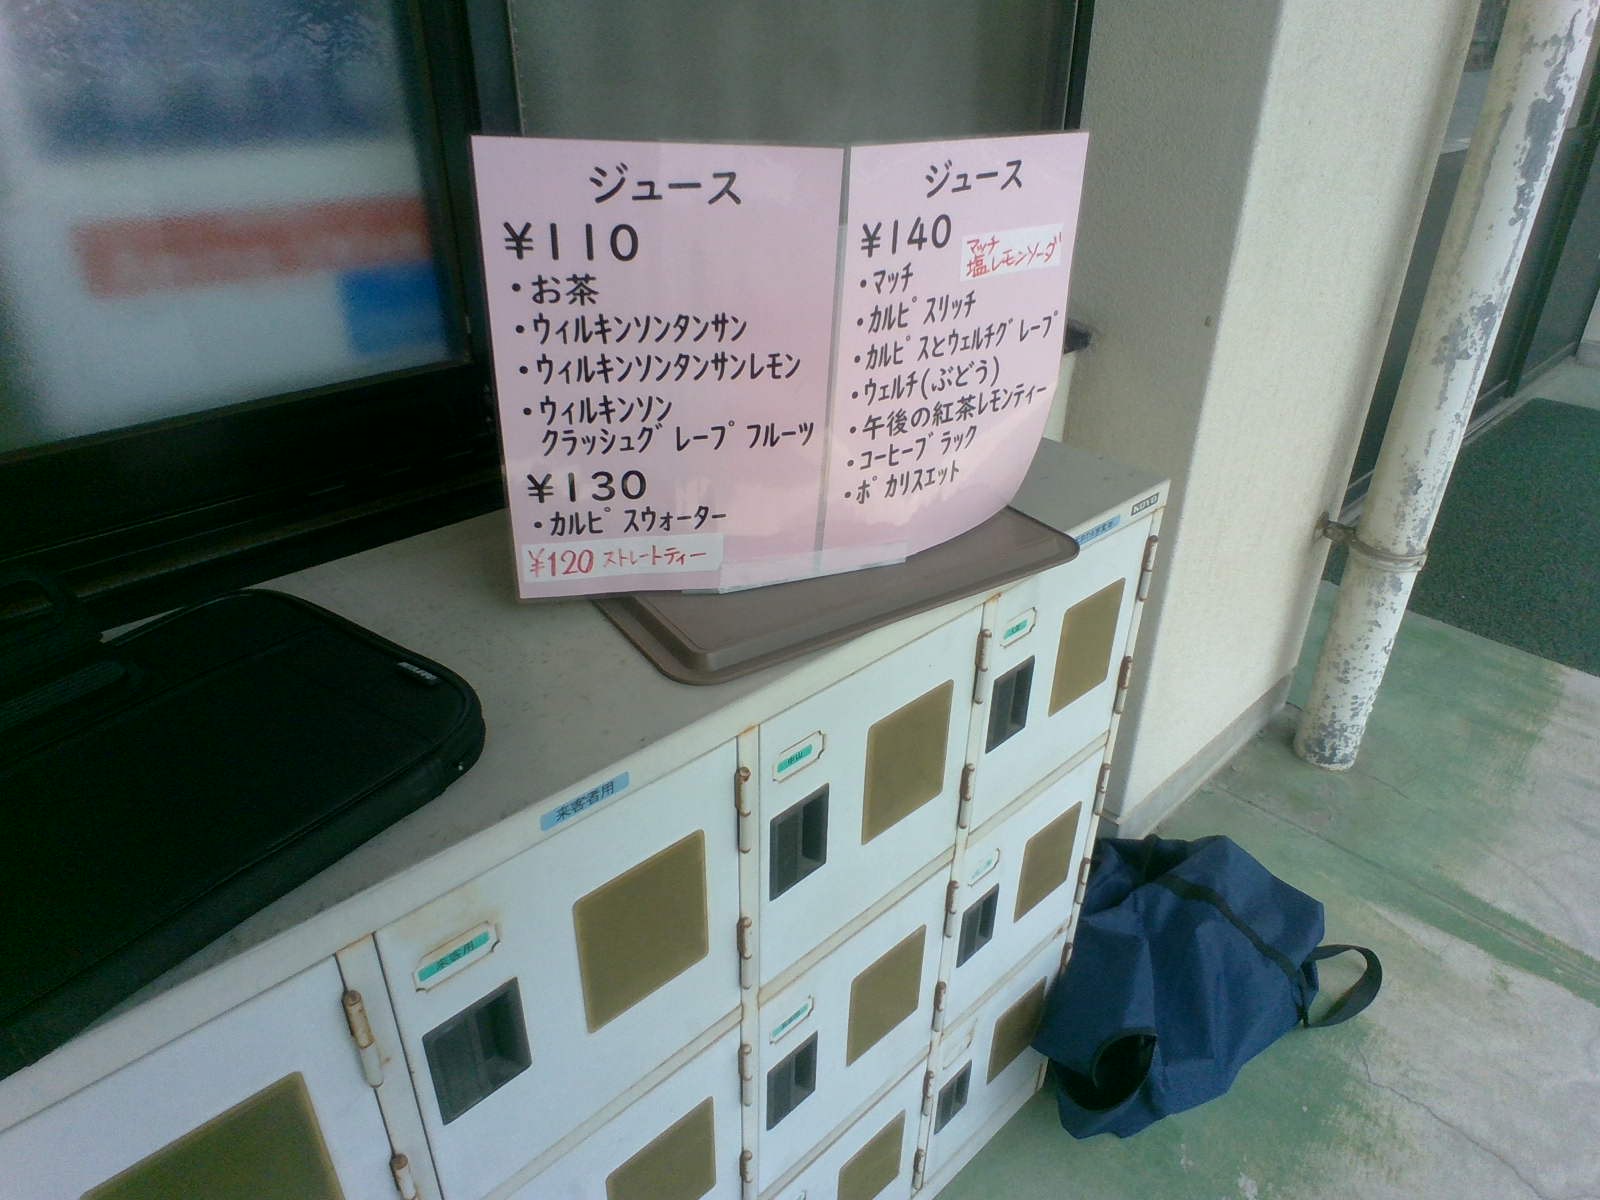 ジュース
¥110
・お茶
・ウィルキンソンタンサン
・ウィルキンソンタンサンレモン
・ウィルキンソン
クラッシュグレープフルーツ
¥130
・カルピスウォーター
¥120 ストレートティー
ジュース
¥140
マッチ
塩レモンソーダ
・マッチ
・カルピスリッチ
・カルピスとウェルチグレープ
・ウェルチ(ぶどう)
・午後の紅茶レモンティー
・コーヒーブラック
・ポカリスエット
来客者用
来客用